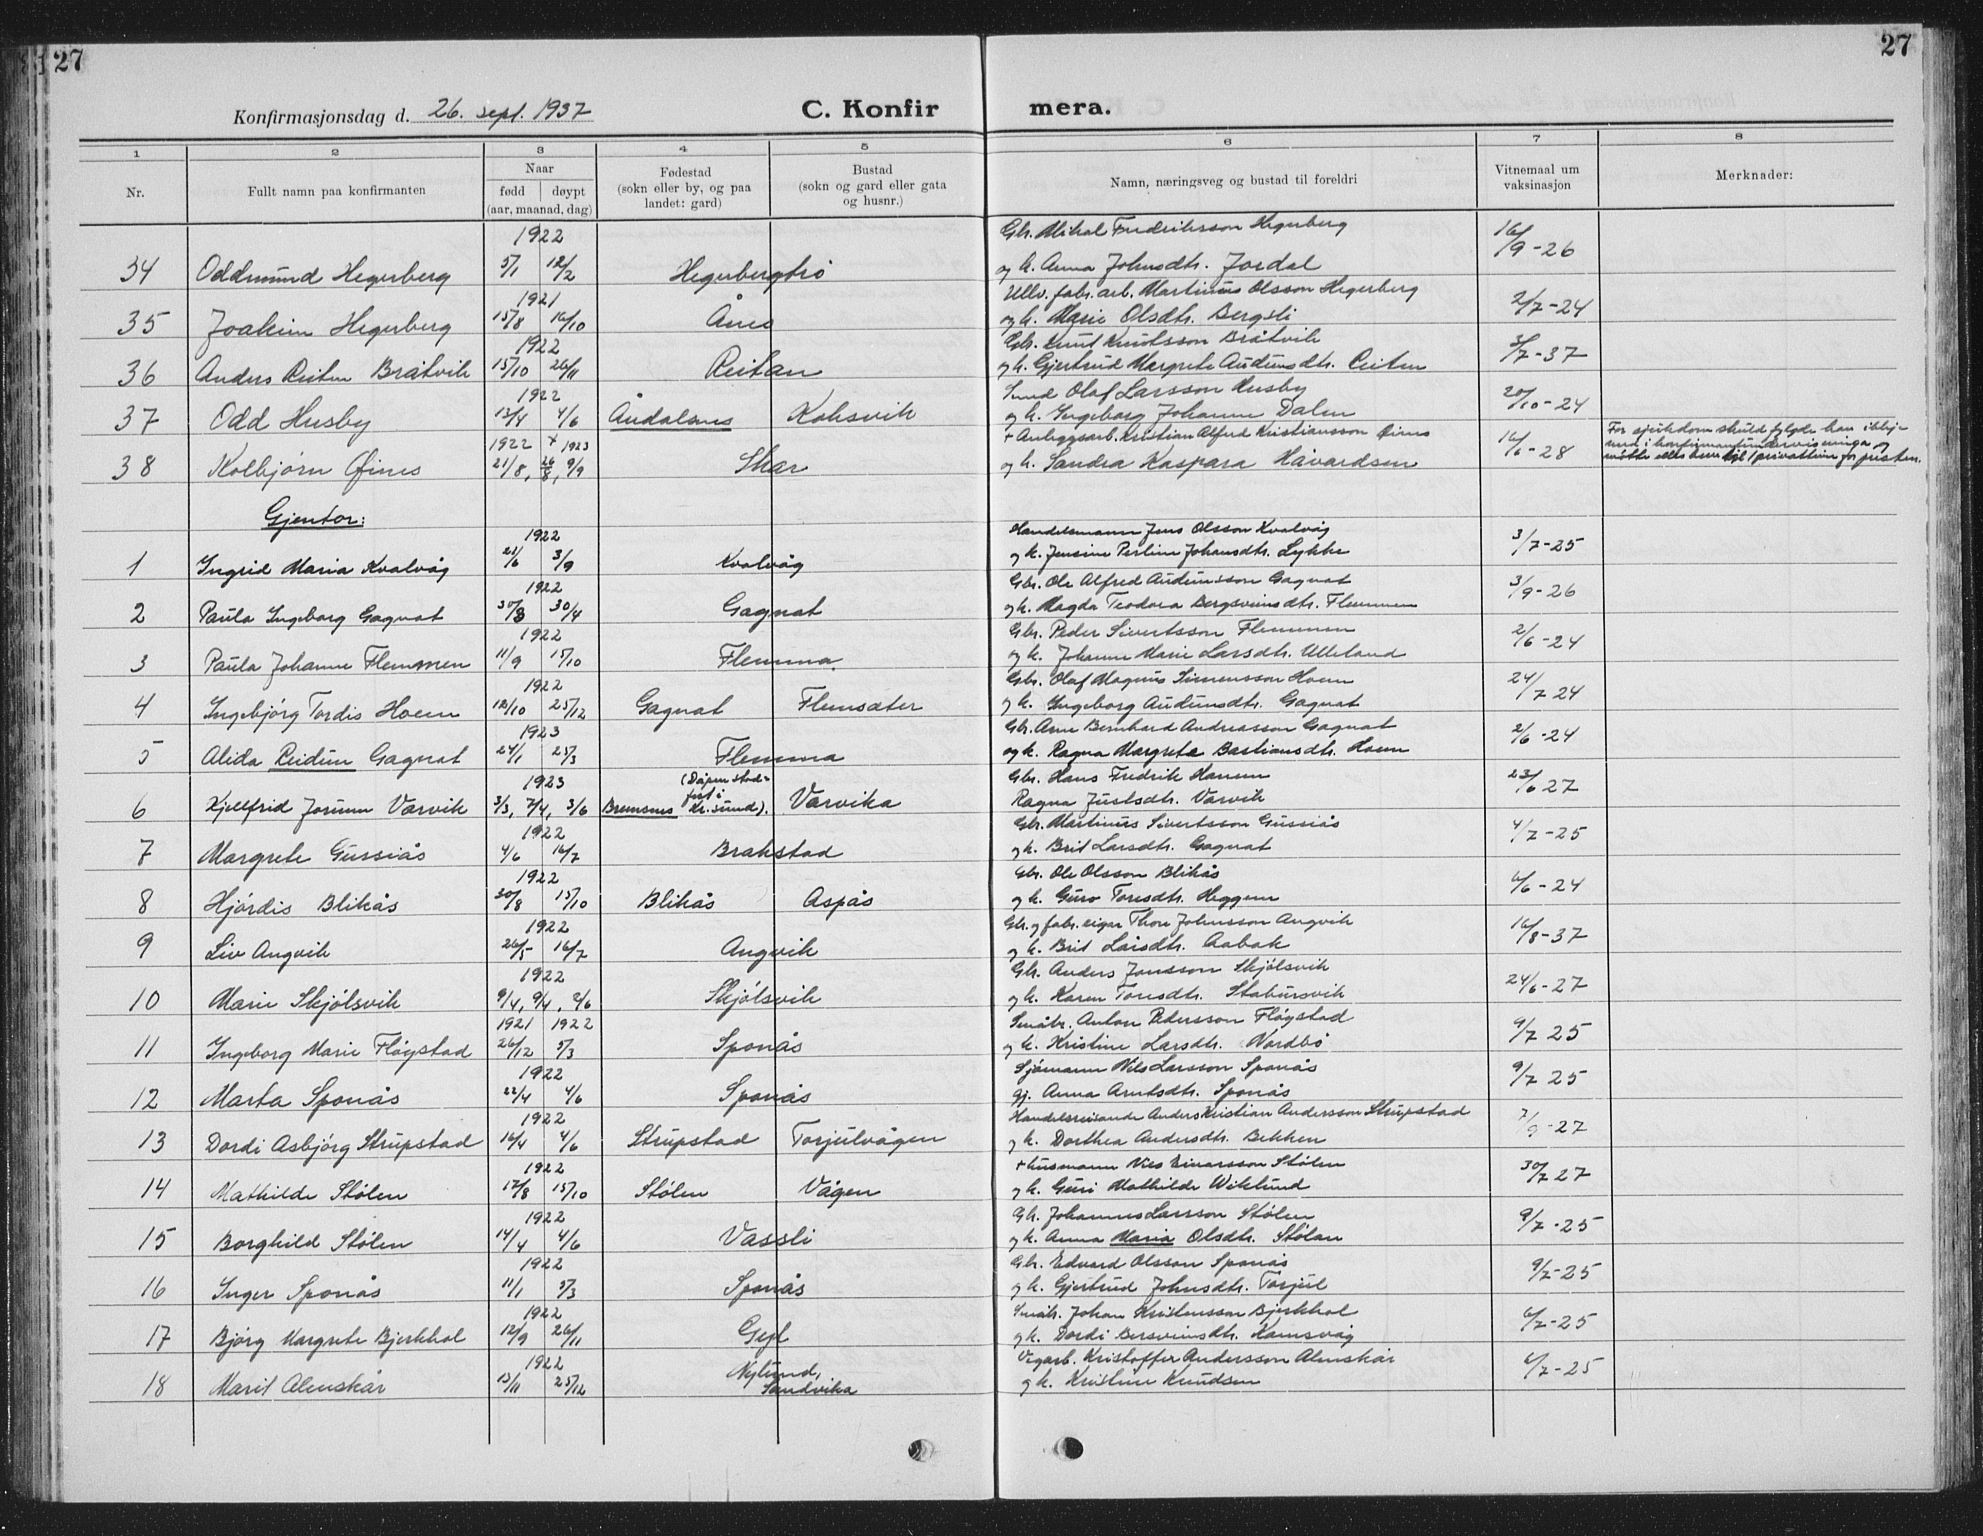 27
27
Konfirmasjonsdag d. 26. sept. 1937
C. Konfir mera.
1 2 3 4 5 6 7 8
Nr.
Fullt namn paa konfirmanten
Naar
fødd døypt
(aar, maanad, dag)
Fødestad
(sokn eller by, og paa
landet: gard)
Bustad
(sokn og gard eller gata
og husnr.)
Namn, næringsveg og bustad til foreldri
Vitnemaal um
vaksinasjon
Merknader:
1922 Gbr. Mikal Fredriksson Hegerberg
34 Oddmund Hegerberg 5/1 12/2 Hegerbergtrø og k. Anna Johnsdtr. Jordal 16/9-26
1921 Ullv. fabr. arb. Martinus Olsson Hegerberg
35 Joakim Hegerberg 15/8 16/10 Ånes og k. Marie Olsdtr. Bergsli 2/7-24
1922 Gbr. Knut Knutsson Bråtvik
36 Anders Reiten Bråtvik 15/10 26/11 Reitan og k. Gjertrud Margrete Audunsdtr. Reiten /7-37
1922 Smed Olaf Larsson Husby
37 Odd Husby 13/4 4/6 Åndalsnes Koksvik og k. Ingeborg Johanne Dalen 20/10-24
1922 + 1923 + Anleggsarb. Kristian Alfred Kristiansson Øines
38 Kolbjørn Øines 21/8, 26/8, 9/9 Skar og k. Sandra Kaspara Håvardsen 16/6-28
For sjukdom skuld fylgde han ikkje
med i konfirmantundervisninga og
møtte elles berre til privattime for presten.
Gjentor:
1922 Handelsmann Jens Olsson Kvalvåg
1 Ingrid Maria Kvalvåg 21/6 3/9 Kvalvåg og k. Jensine Perline Johansdtr. Lykke 3/7-25
1922 Gbr. Ole Alfred Audunsson Gagnat
2 Paula Ingeborg Gagnat 30/3 30/4 Gagnat og k. Magda Teodora Bergsveinsdtr. Flemmen 3/9-26
1922 Gbr. Peder Sivertsson Flemmen
3 Paula Johanne Flemmen 11/9 15/10 Flemma og k. Johanne Marie Larsdtr. Ulleland 2/6-24
1922 Gbr. Olaf Magnus Simensson Hoem
4 Ingebjørg Tordis Hoem 12/10 25/12 Gagnat Flemsæter og k. Ingeborg Audunsdtr. Gagnat 24/7 24
1923 Gbr. Arne Bernhard Andreasson Gagnat
5 Alida Reidun Gagnat 24/1 25/3 Flemma og k. Ragna Margrete Bastiansdtr. Hoem 2/6-24
1923 (Dåpen stad- Gbr. Hans Fredrik Hansen
fest i
6 Kjellfrid Jorunn Varvik 3/3, 7/4, 3/6 Bremsnes Kr.sund). Varvika Ragna Justsdtr. Varvik 23/6 27
1922 Gbr. Martinus Sivertsson Gussiås
7 Margrete Gussiås 4/6 16/7 Brakstad og k. Brit Larsdtr. Gagnat 4/7-25
1922 Gbr. Ole Olsson Blikås
8 Hjördis Blikås 30/8 15/10 Blikås Aspås og k. Guro Toresdtr. Heggem 6/6-24
1922 Gbr. og fabr. eigar Thore Johnsson Angvik
9 Liv Angvik 26/5 16/7 Angvik og k. Brit Larsdtr. Aabak 16/8-37
1922 Gbr. Anders Jonsson Skjölsvik
10 Marie Skjölsvik 9/4, 9/4, 2/6 Skjölsvik og k. Karen Toresdtr. Stabursvik 24/6-27
1921 1922 Småbr. Anton Pedersson Flögstad
11 Ingeborg Marie Flögstad 26/12 5/3 Sponås og k. Kristine Larsdtr. Nordbö 9/7 25
1922 Sjømann Nils Larsson Sponås
12 Marta Sponås 22/4 4/6 Sponås Gj. Anna Arntsdtr. Sponås 9/7 25
1922 Handelsreisande Anders Kristian Andersson Strupstad
13 Dordi Asbjörg Strupstad 16/4 4/6 Strupstad Torjulvågen og k. Dorthea Andersdtr. Bekken 7/9-27
1922 + husmann Nils Einarsson Stølen
14 Mathilde Stølen 17/8 15/10 Stølen Vågen og k. Guri Mathilde Wiklund 30/7 27
1922 Gbr. Johannes Larsson Stølen
15 Borghild Stølen 14/4 4/6 Vassli og k. Anna Maria Olsdtr. Stølan 9/7-25
1922 Gbr. Edvard Olsson Sponås
16 Inger Sponås 11/1 5/3 Sponås og k. Gjertrud Johnsdtr. Torjul 9/7-25
1922 Småbr. Johan Kristensson Bjerkhol
17 Björg Margrete Bjerkhol 12/9 26/11 Gyl og k. Dordi Bersveinsdtr. Hamsvåg 6/7-25
1922 Nylund, Vegarb. Kristoffer Andersson Alenskår
18 Marit Alenskår 13/11 25/12 Sandvika og k. Kristine Knudsen 6/7-25